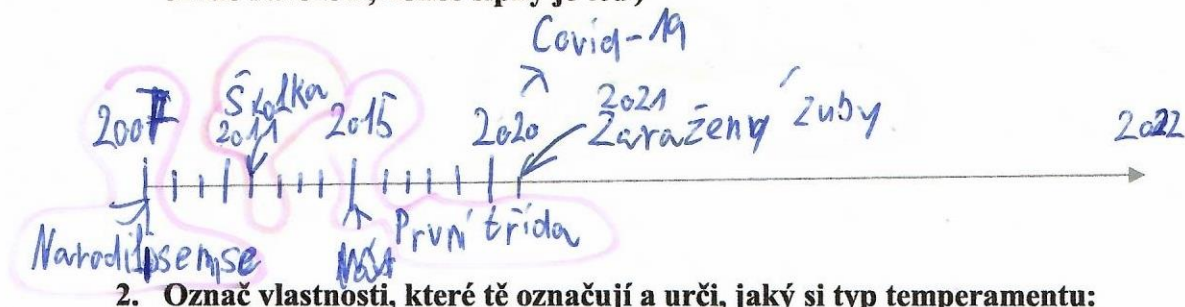 Covid-19
2007 Školka 2011 2015 2020 2021 Zaražený zuby 2022
Narodil jsem se První třída
2. Označ vlastnosti, které tě označují a urči, jaký si typ temperamentu: